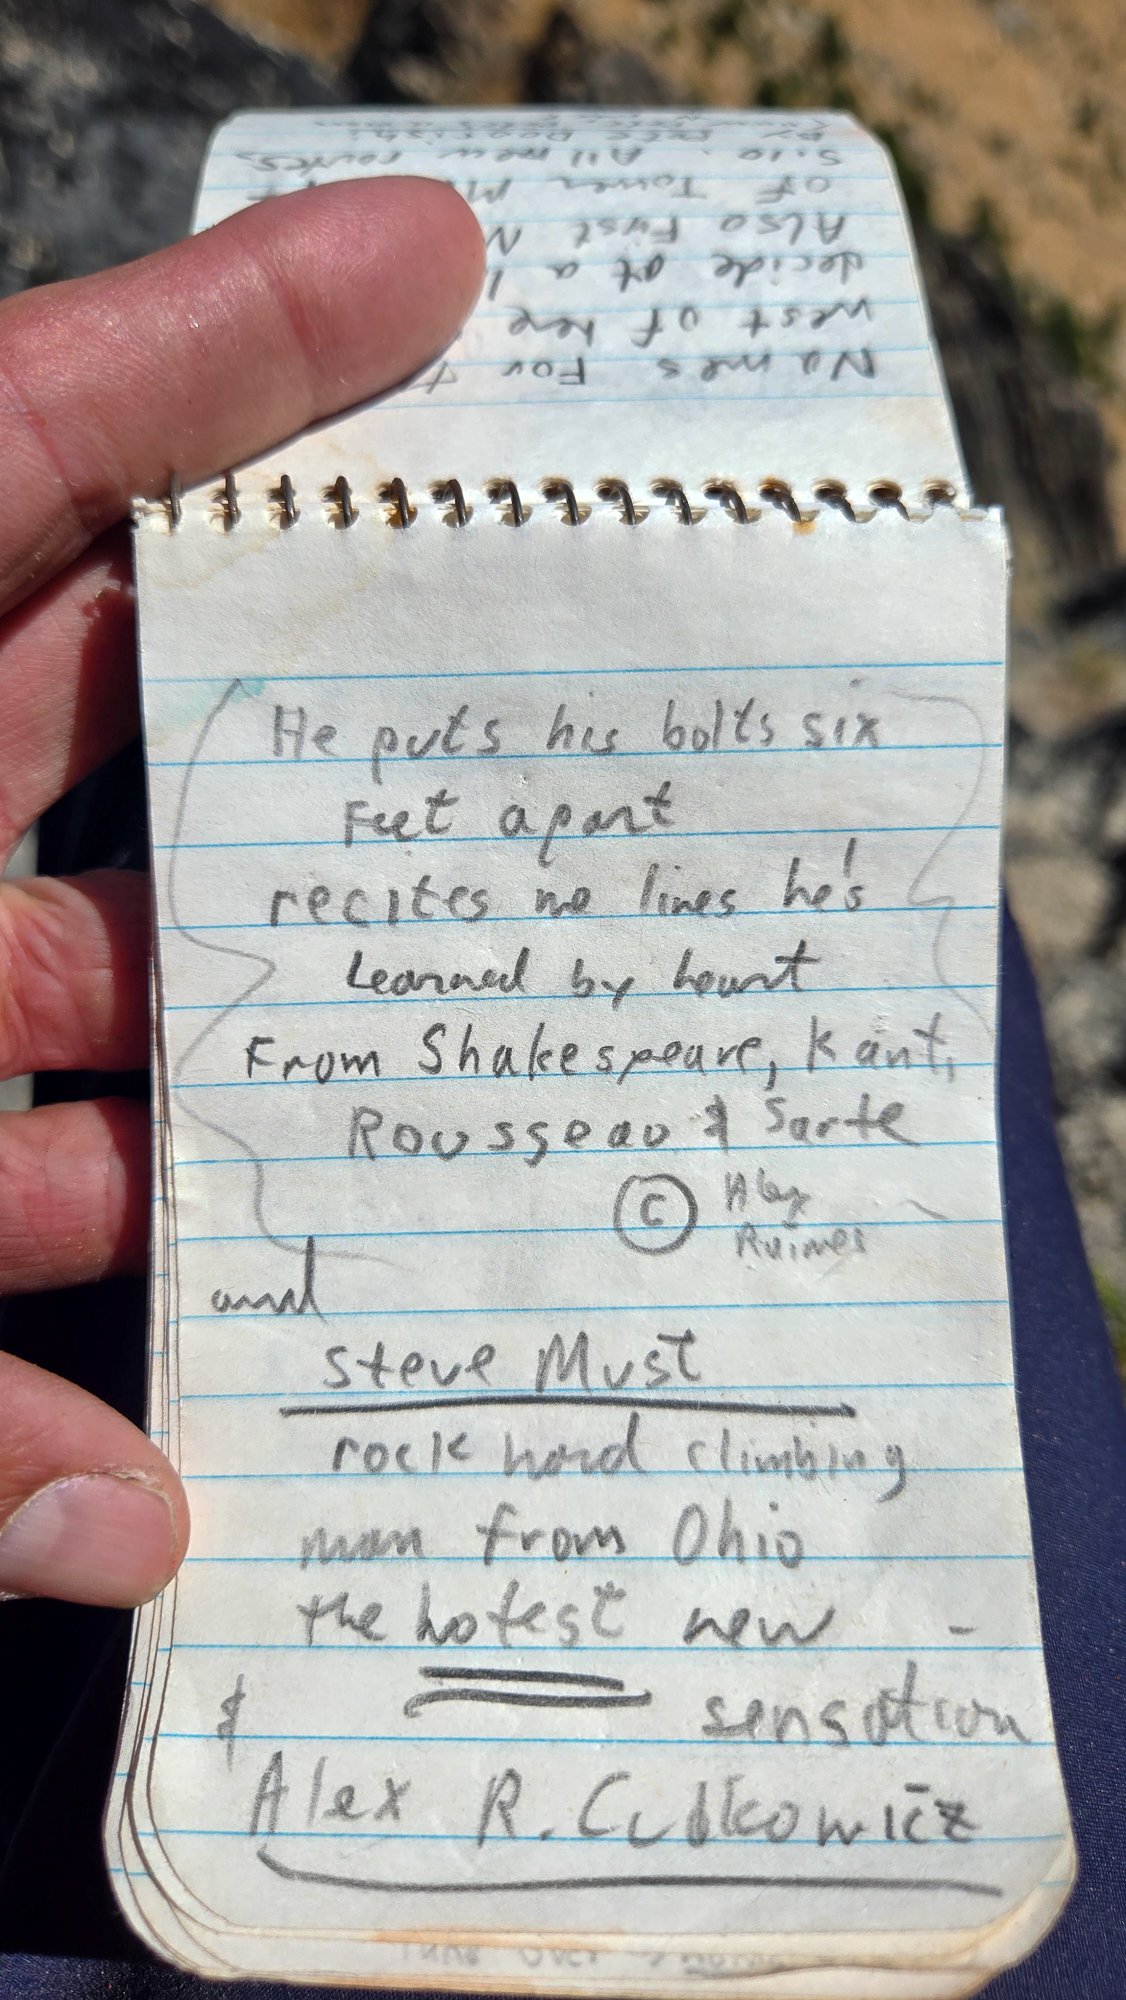 Names For
west of here
decide at a
Also First
of Tower
5.10. All new routes.
by
He puts his bolts six
Feet apart
recites no lines he's
Learned by heart
From Shakespeare, Kant,
Rousseau & Sarte
© Alex
Ruimes
and
Steve Must
rock hard climbing
man from Ohio
the hotest new -
& sensation
Alex R. Cudkowicz